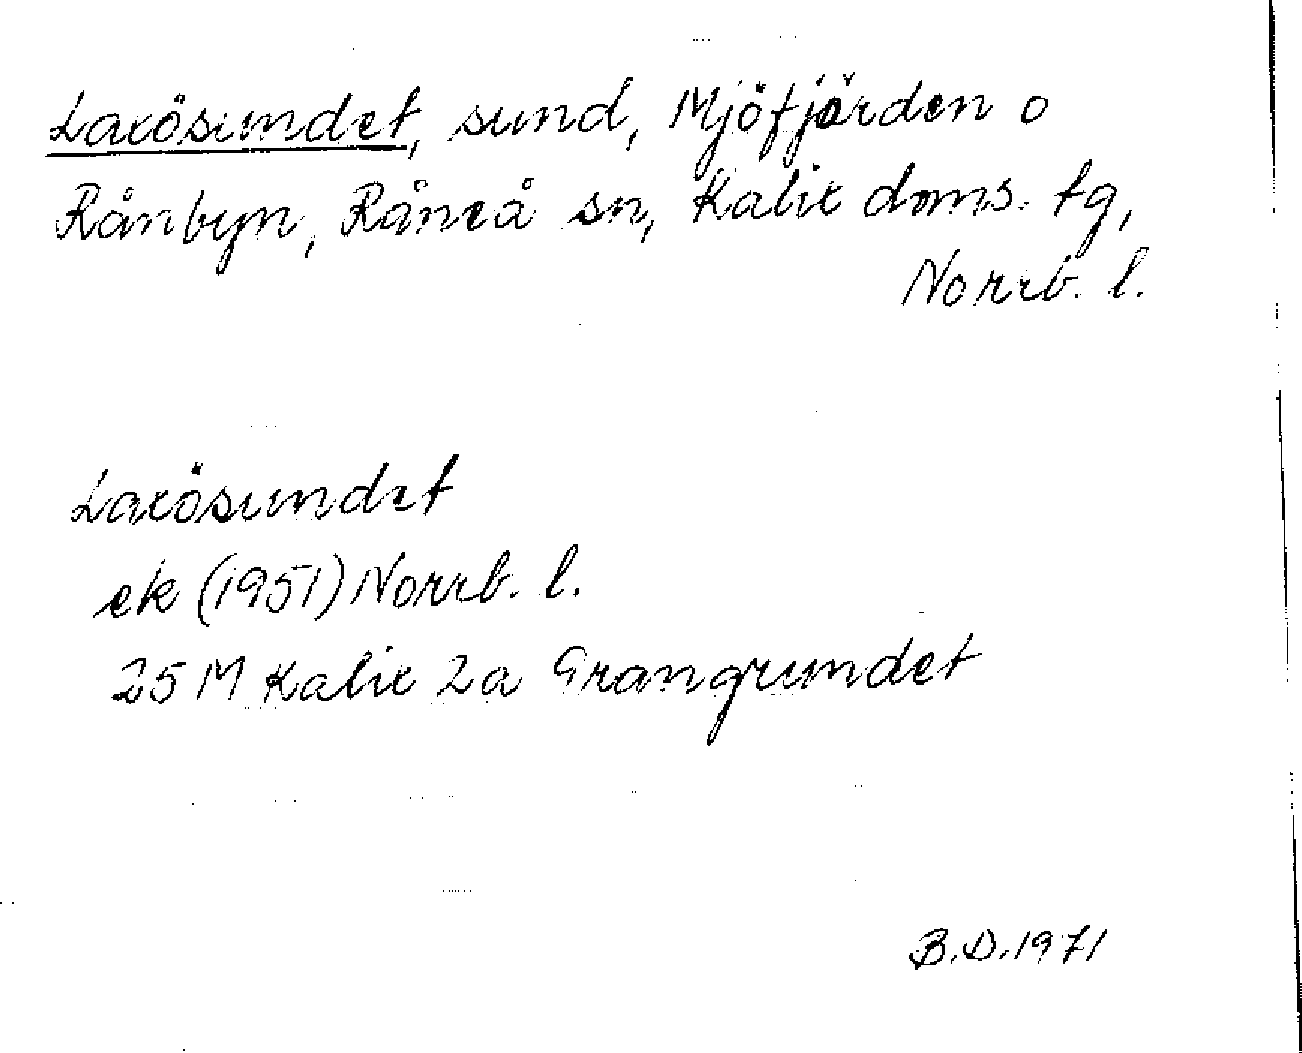 Laxösundet, sund, Mjöfjärden o
Rånbyn, Råneå sn, Kalix doms. tg,
Norrb. l.
Laxösundet
ek (1951) Norrb. l.
25 M Kalix 2a Grangrundet
B.D. 1971